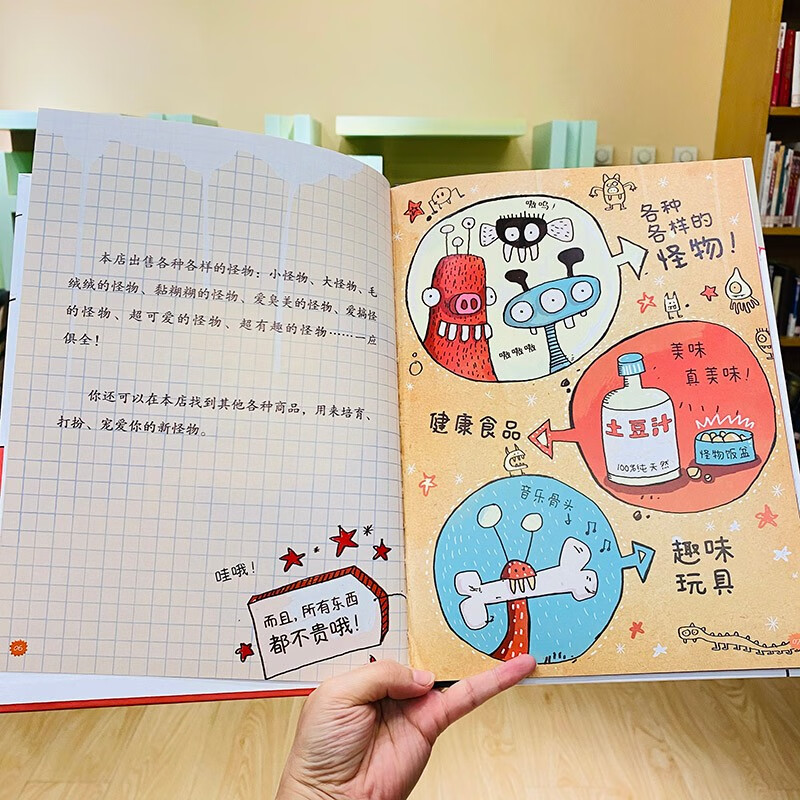 本店出售各种各样的怪物：小怪物、大怪物、毛
绒绒的怪物、黏糊糊的怪物、爱臭美的怪物、爱搞怪
的怪物、超可爱的怪物、超有趣的怪物……一应
俱全！
你还可以在本店找到其他各种商品，用来培育、
打扮、宠爱你的新怪物。
哇哦！
而且，所有东西
都不贵哦！
06
嗷呜！
嗷嗷嗷
各种
各样的
怪物！
美味
真美味！
土豆汁
100%纯天然
怪物饭盆
健康食品
音乐骨头
趣味
玩具